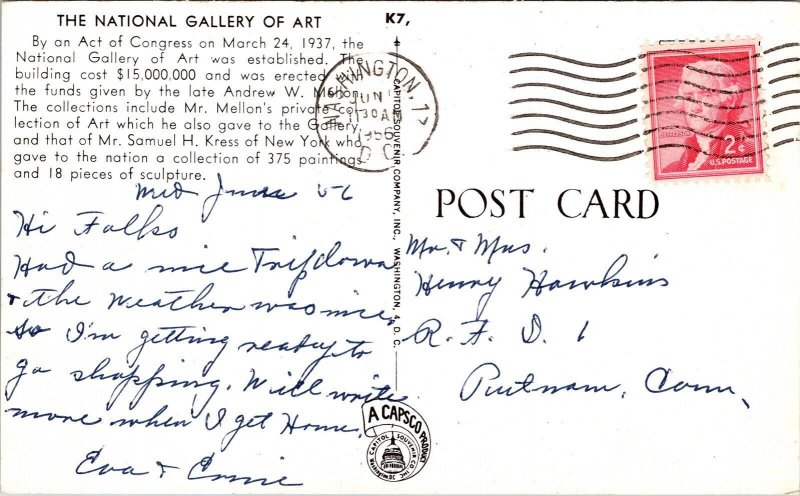 THE NATIONAL GALLERY OF ART
By an Act of Congress on March 24, 1937, the
National Gallery of Art was established. The
building cost $15,000,000 and was erected
the funds given by the late Andrew W.
The collections include Mr. Mellon's private col-
lection of Art which he also gave to the Gallery,
and that of Mr. Samuel H. Kress of New York who
gave to the nation a collection of 375 paintings
and 18 pieces of sculpture.
Wed June
Hi Folks
Had a nice Trip down
+ the weather was nice,
so I'm getting ready to
go shopping. Will write
more when I get Home.
Eva + Ernie
K7,
CAPITOL SOUVENIR COMPANY, INC., WASHINGTON 4, D. C.
A CAPSCO PRODUCT
CAPITOL SOUVENIR CO
WASHINGTON,
JUN
11 30 A
1956
D C
2¢
U.S. POSTAGE
POST CARD
Mr. & Mrs.
Henry Hawkins
R. F. D. 1
Putnam, Conn.